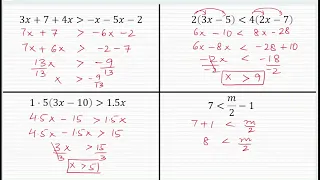 3x + 7 + 4x > −x − 5x − 2
7x + 7 > −6x − 2
7x + 6x > −2 − 7
13x/13 > −9/13
x > −9/13
2(3x − 5) < 4(2x − 7)
6x − 10 < 8x − 28
6x − 8x < −28 + 10
−2x/−2 < −18/−2
x > 9
1 · 5(3x − 10) > 1.5x
4.5x − 15 > 1.5x
4.5x − 1.5x > 15
3x/3 > 15/3
x > 5
7 < m/2 − 1
7 + 1 < m/2
8 < m/2